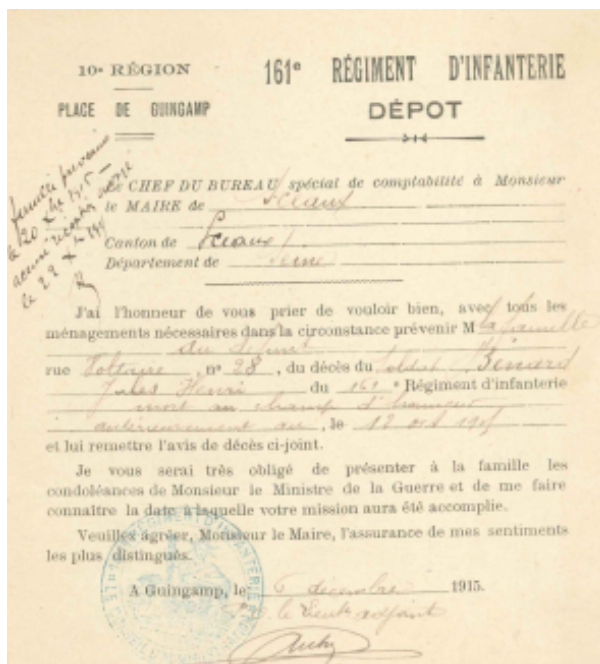 10e RÉGION
PLACE DE GUINGAMP
161e RÉGIMENT D'INFANTERIE
DÉPOT
famille prévenue
le 20 Xbre 1915 —
accusé réception
le 22 Xbre 1915
Le CHEF DU BUREAU spécial de comptabilité à Monsieur
le MAIRE de Sceaux
Canton de Sceaux
Département de Seine
J'ai l'honneur de vous prier de vouloir bien, avec tous les
ménagements nécessaires dans la circonstance prévenir M la famille
du défunt
rue Voltaire, no 28, du décès du Soldat Bénard
Jules Henri du 161e Régiment d'infanterie
mort au champ d'honneur
antérieurement au, le 12 oct 1915
et lui remettre l'avis de décès ci-joint.
Je vous serai très obligé de présenter à la famille les
condoléances de Monsieur le Ministre de la Guerre et de me faire
connaître la date à laquelle votre mission aura été accomplie.
Veuillez agréer, Monsieur le Maire, l'assurance de mes sentiments
les plus distingués.
A Guingamp, le 6 décembre 1915.
le Lieut adjoint
RÉGIMENT D'INFANTERIE
CONSEIL D'ADMINISTRATION